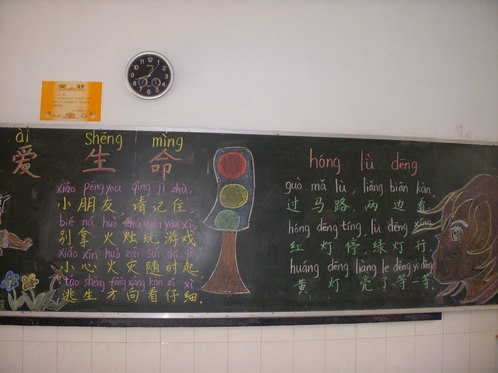 奖状
ài shēng mìng
爱生命
xiǎo péng you qǐng jì zhù,
小朋友,请记住,
bié ná huǒ
别拿火烛玩游戏,
xiǎo xīn huǒ zāi suí shí qǐ
小心火灾随时起,
táo shēng fāng xiàng kàn zǐ xì
逃生方向看仔细.
hóng lǜ dēng
guò mǎ lù, liǎng biān kàn,
过马路,两边看,
hóng dēng tíng lǜ dēng xíng
红灯停,绿灯行,
huáng dēng liàng le děng yi děng
黄灯亮了等一等.